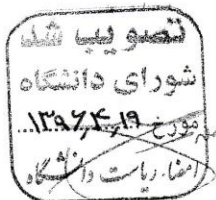 تصویب شد
شورای دانشگاه
مورخ ۱۳۹۶,۴,۱۹
امضاء ریاست دانشگاه